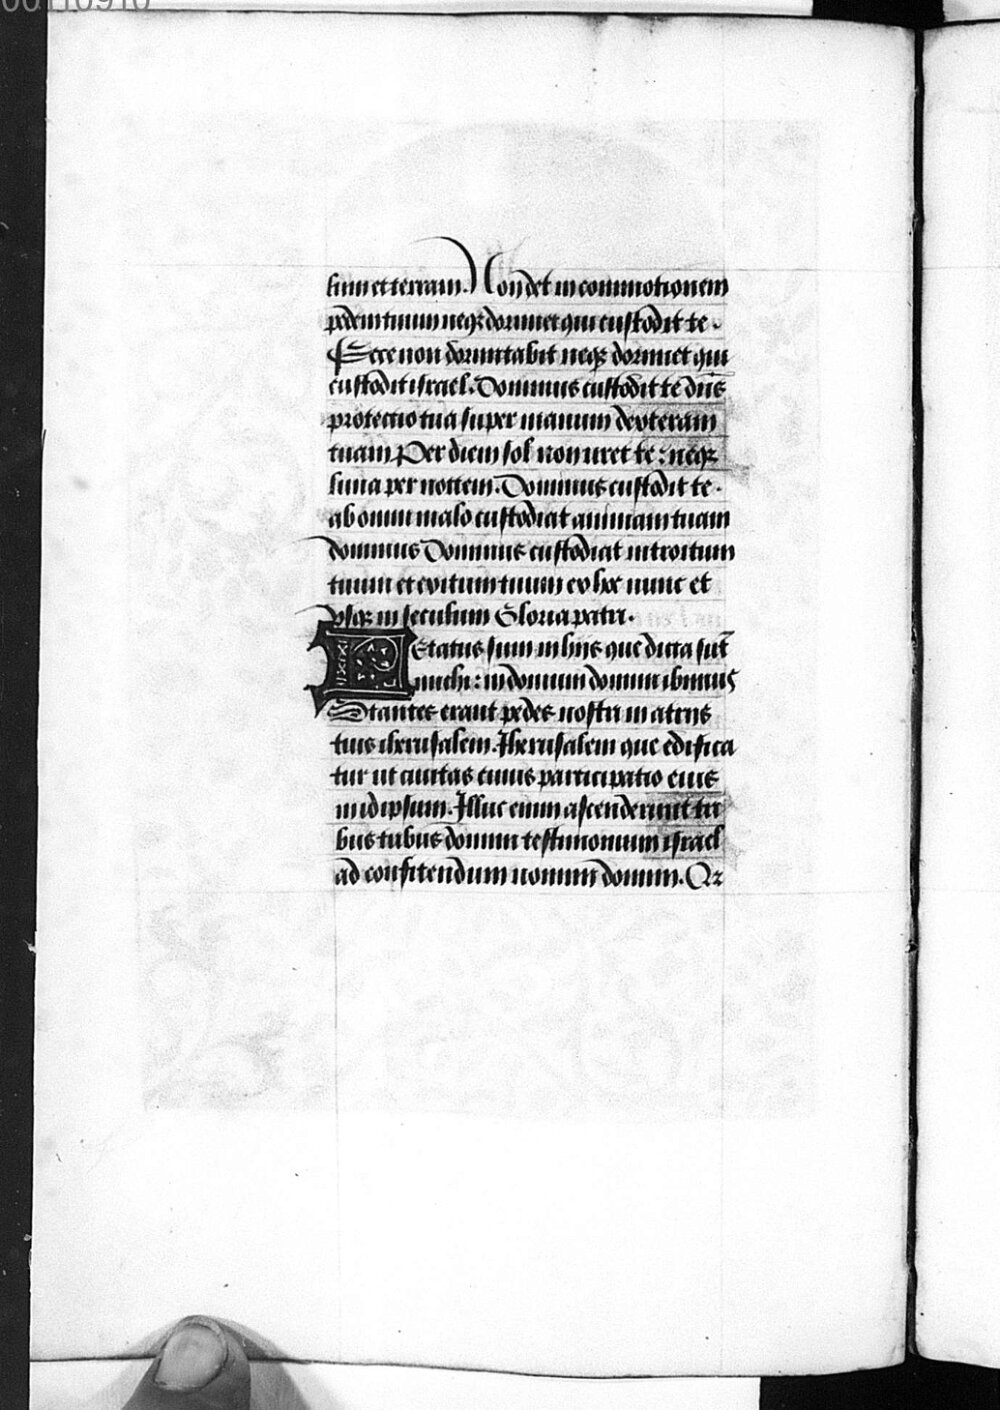 00110910
lum et terram. Non det in commotionem
pedem tuum neqꝫ dormiet qui custodit te.
Ecce non dormitabit neqꝫ dormiet qui
custodit israel. Dominus custodit te dn̄s
protectio tua super manum dexteram
tuam Per diem sol non uret te: neqꝫ
luna per noctem. Dominus custodit te.
ab omni malo custodiat animam tuam
dominus Dominus custodiat introitum
tuum et exitum tuum ex hoc nunc et
vsqꝫ in seculum Gloria patri.
Letatus sum in hiis que dicta sūt
michi: in domum domini ibimus
Stantes erant pedes nostri in atriis
tuis iherusalem. Iherusalem que edifica
tur ut ciuitas cuius participatio eius
in idipsum. Illuc enim ascenderunt tri
bus tribus domini testimonium israel
ad confitendum nomini domini. Qꝛ